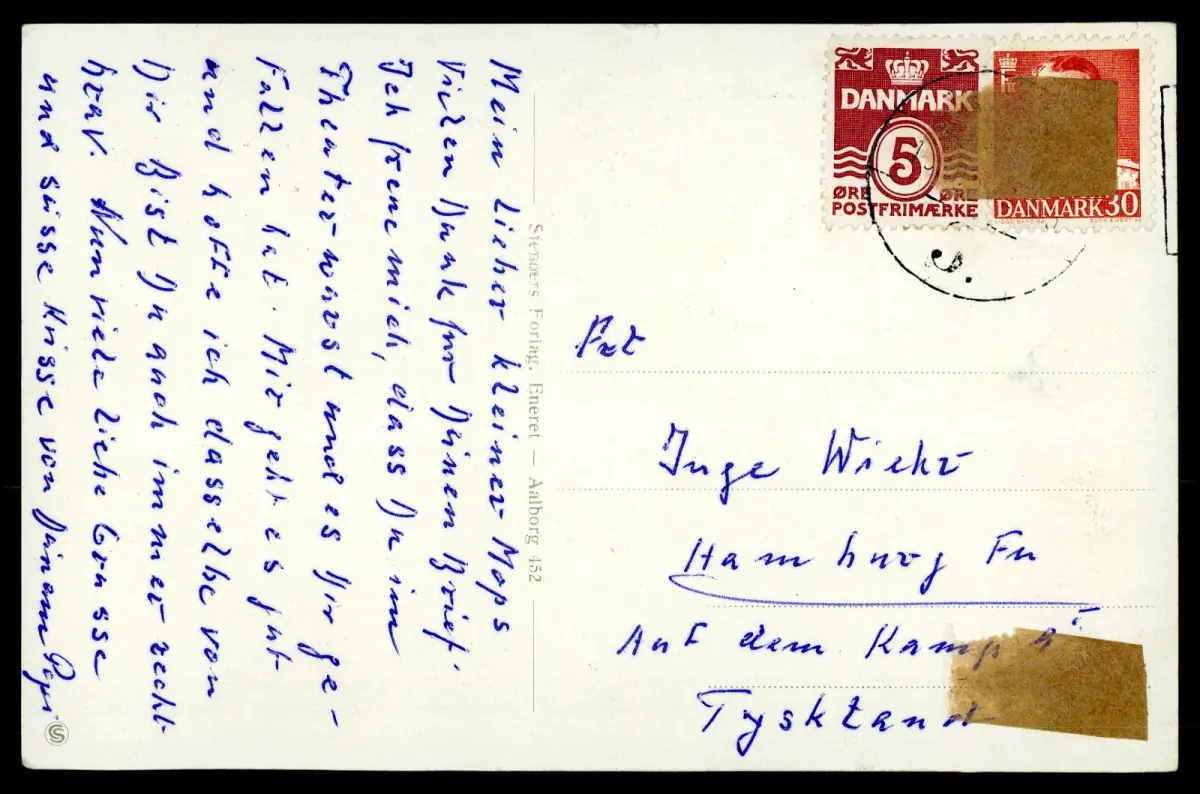 Mein lieber kleiner Mops
Vielen Dank fur Deinen Brief.
Ich freue mich, dass Du im
Theater warst und es Dir ge-
fallen hat. Mir geht es gut
und hoffe ich dasselbe von
Dir Bist Du auch immer recht
brav. Nun viele liebe Grusse
und susse Kusse von Deinem Papi
Stenders Forlag. Eneret — Aalborg 452
DANMARK
5
ØRE ØRE
POSTFRIMÆRKE
DANMARK 30
Frl
Inge Wiehr
Hamburg Fu
Auf dem Kamp
Tyskland